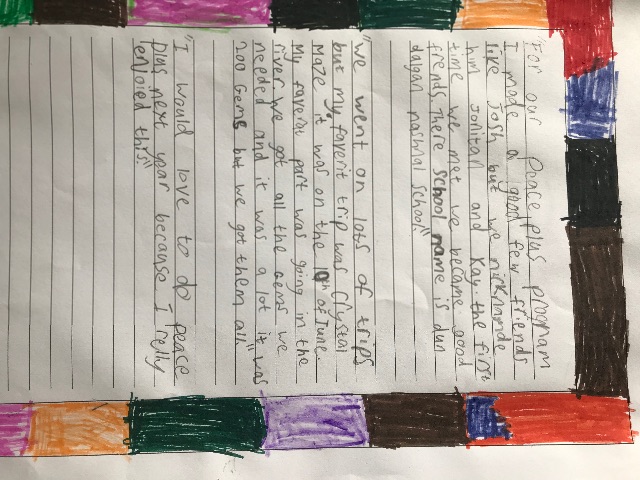 "For our Peace plus program
I made a good few friends
like Josh but we nicknamde
him Jollitan and Kay the first
time we met we became good
frends. There school name is dun
dalgan nashnal school."
"We went on lots of trips
but my faverit trip was Crystal
Maze it was on the 10th of June.
My faverit part was going in the
river. We got all the Gems we
needed and it was a lot it was
200 Gems but we got them all."
"I would love to do peace
plus next year because I relly
enjoied this."